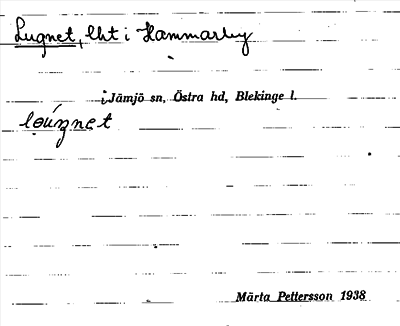 Lugnet, lht i Hammarby
i Jämjö sn, Östra hd, Blekinge l.
Märta Pettersson 1938